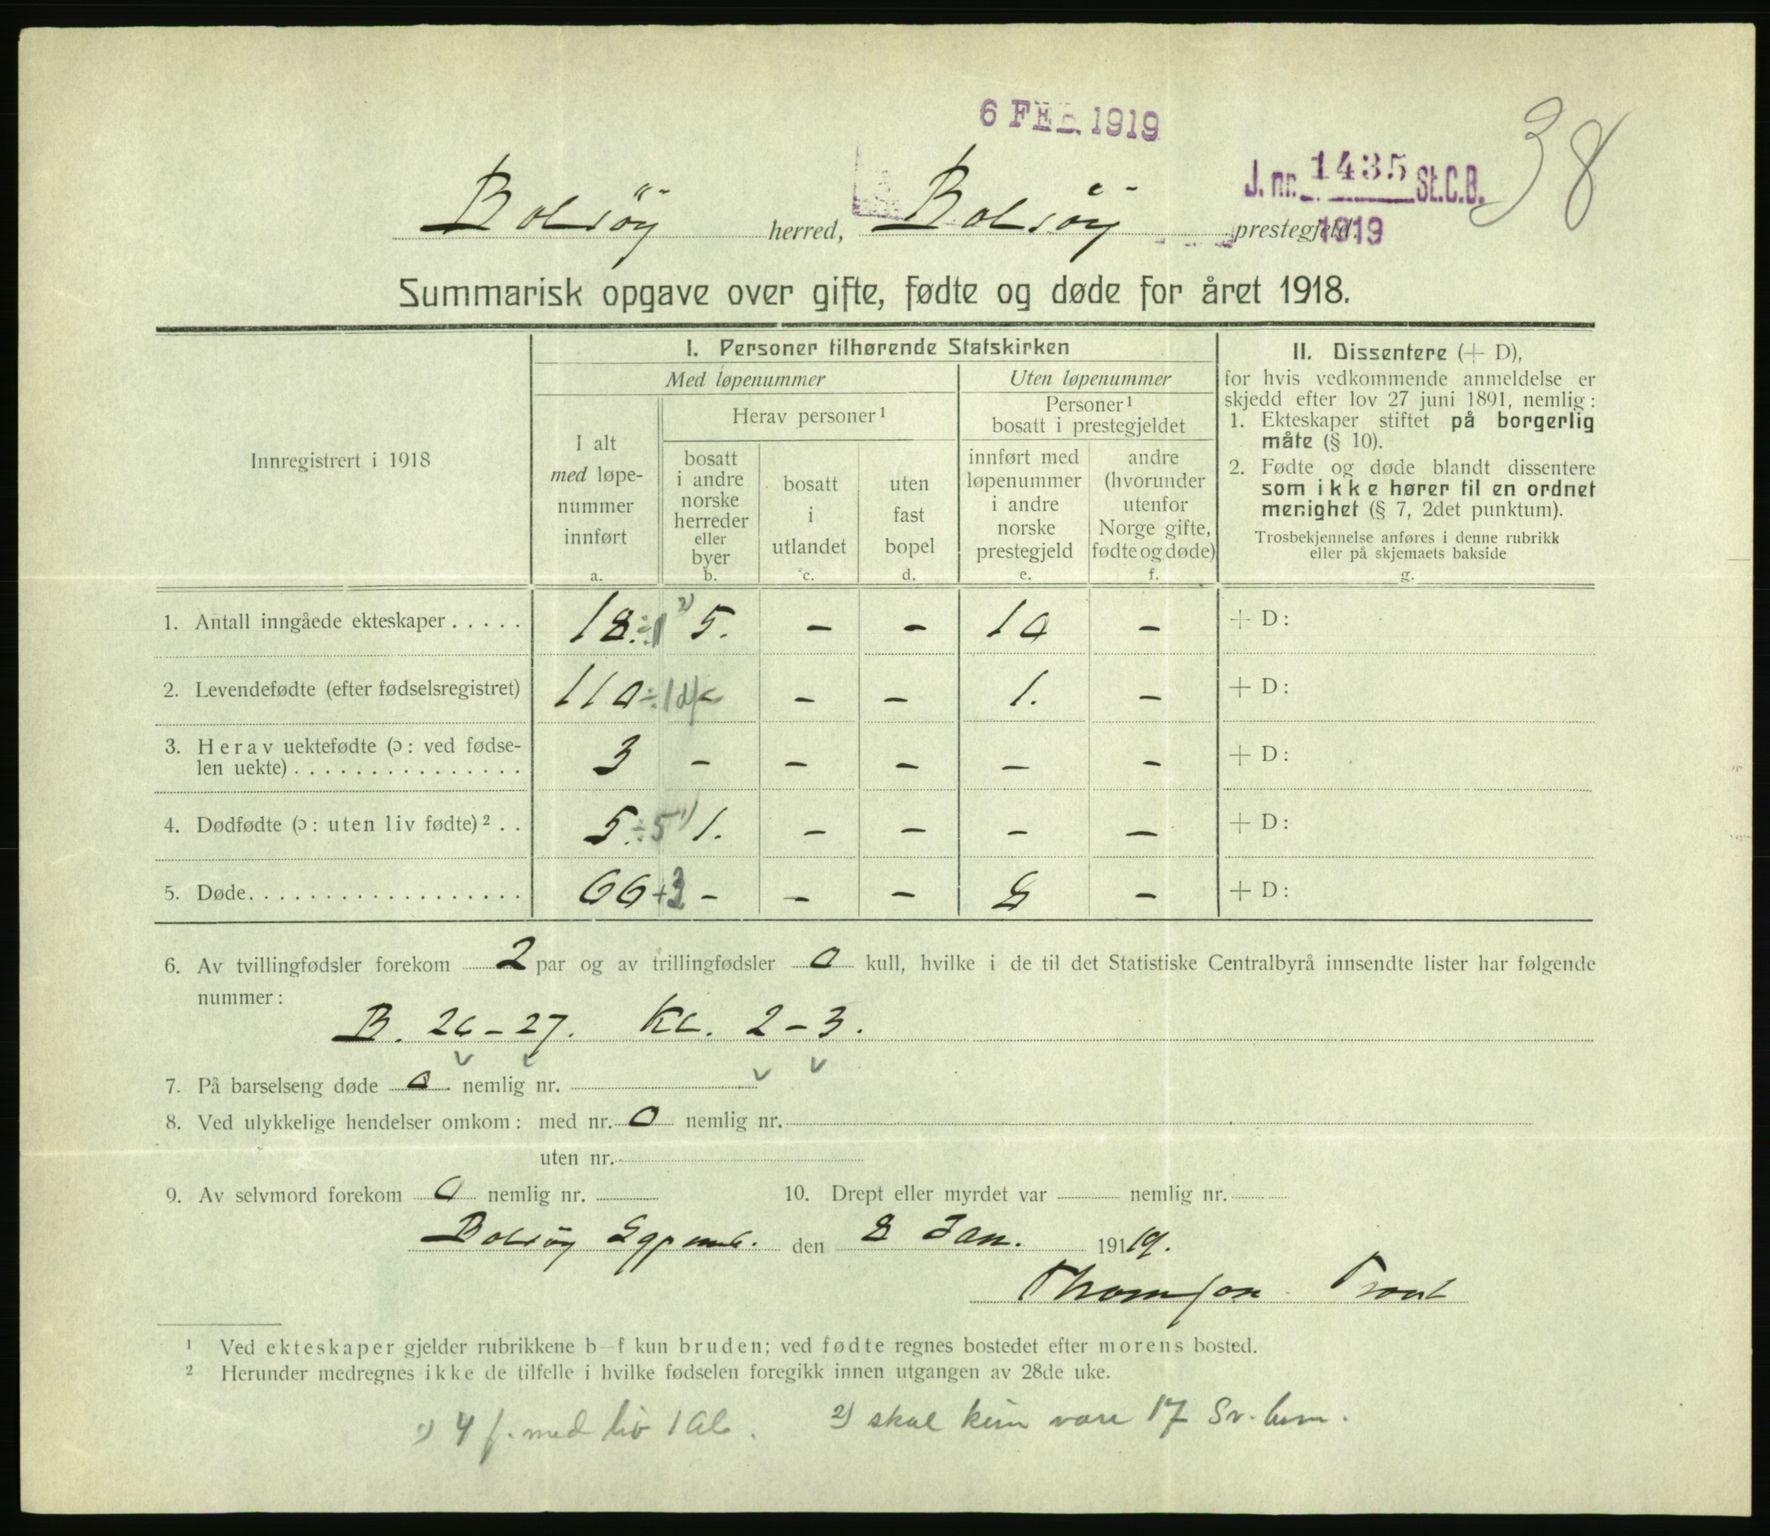 6 FEB 1919
38
J. nr. 1435 St.C.B.
1919
Bolsöy herred, Bolsöy prestegjeld.
Summarisk opgave over gifte, fødte og døde for året 1918.
Innregistrert i 1918
I. Personer tilhørende Statskirken
Med løpenummer
Uten løpenummer
I alt
med løpe-
nummer
innført
a.
Herav personer¹
bosatt
i andre
norske
herreder
eller
byer
b.
bosatt
i
utlandet
c.
uten
fast
bopel
d.
Personer¹
bosatt i prestegjeldet
innført med
løpenummer
i andre
norske
prestegjeld
e.
andre
(hvorunder
utenfor
Norge gifte,
fødte og døde)
f.
II. Dissentere (+ D),
for hvis vedkommende anmeldelse er
skjedd efter lov 27 juni 1891, nemlig:
1. Ekteskaper stiftet på borgerlig
måte (§ 10).
2. Fødte og døde blandt dissentere
som ikke hører til en ordnet
menighet (§ 7, 2det punktum).
Trosbekjennelse anføres i denne rubrikk
eller på skjemaets bakside
g.
1. Antall inngåede ekteskaper..... 18. ÷1 ²) 5. – – 10 – + D:
2. Levendefødte (efter fødselsregistret) 110 ÷1 – – 1. – + D:
3. Herav uektefødte (ɔ: ved fødse-
len uekte)............... 3 – – – – – + D:
4. Dødfødte (ɔ: uten liv fødte)².. 5. ÷5 ¹) 1. – – – – + D:
5. Døde.................. 66 +3 – – – 8 – + D:
6. Av tvillingfødsler forekom 2 par og av trillingfødsler 0 kull, hvilke i de til det Statistiske Centralbyrå innsendte lister har følgende
nummer:
B. 26–27. Kl. 2–3.
7. På barselseng døde 0 nemlig nr.
8. Ved ulykkelige hendelser omkom: med nr. 0 nemlig nr.
uten nr.
9. Av selvmord forekom 0 nemlig nr. 10. Drept eller myrdet var nemlig nr.
Bolsöy den 8 Jan. 191 19.
Thomson
¹ Ved ekteskaper gjelder rubrikkene b–f kun bruden; ved fødte regnes bostedet efter morens bosted.
² Herunder medregnes ikke de tilfelle i hvilke fødselen foregikk innen utgangen av 28de uke.
¹) 4 f. med liv 1 Ab. ²) skal kun være 17